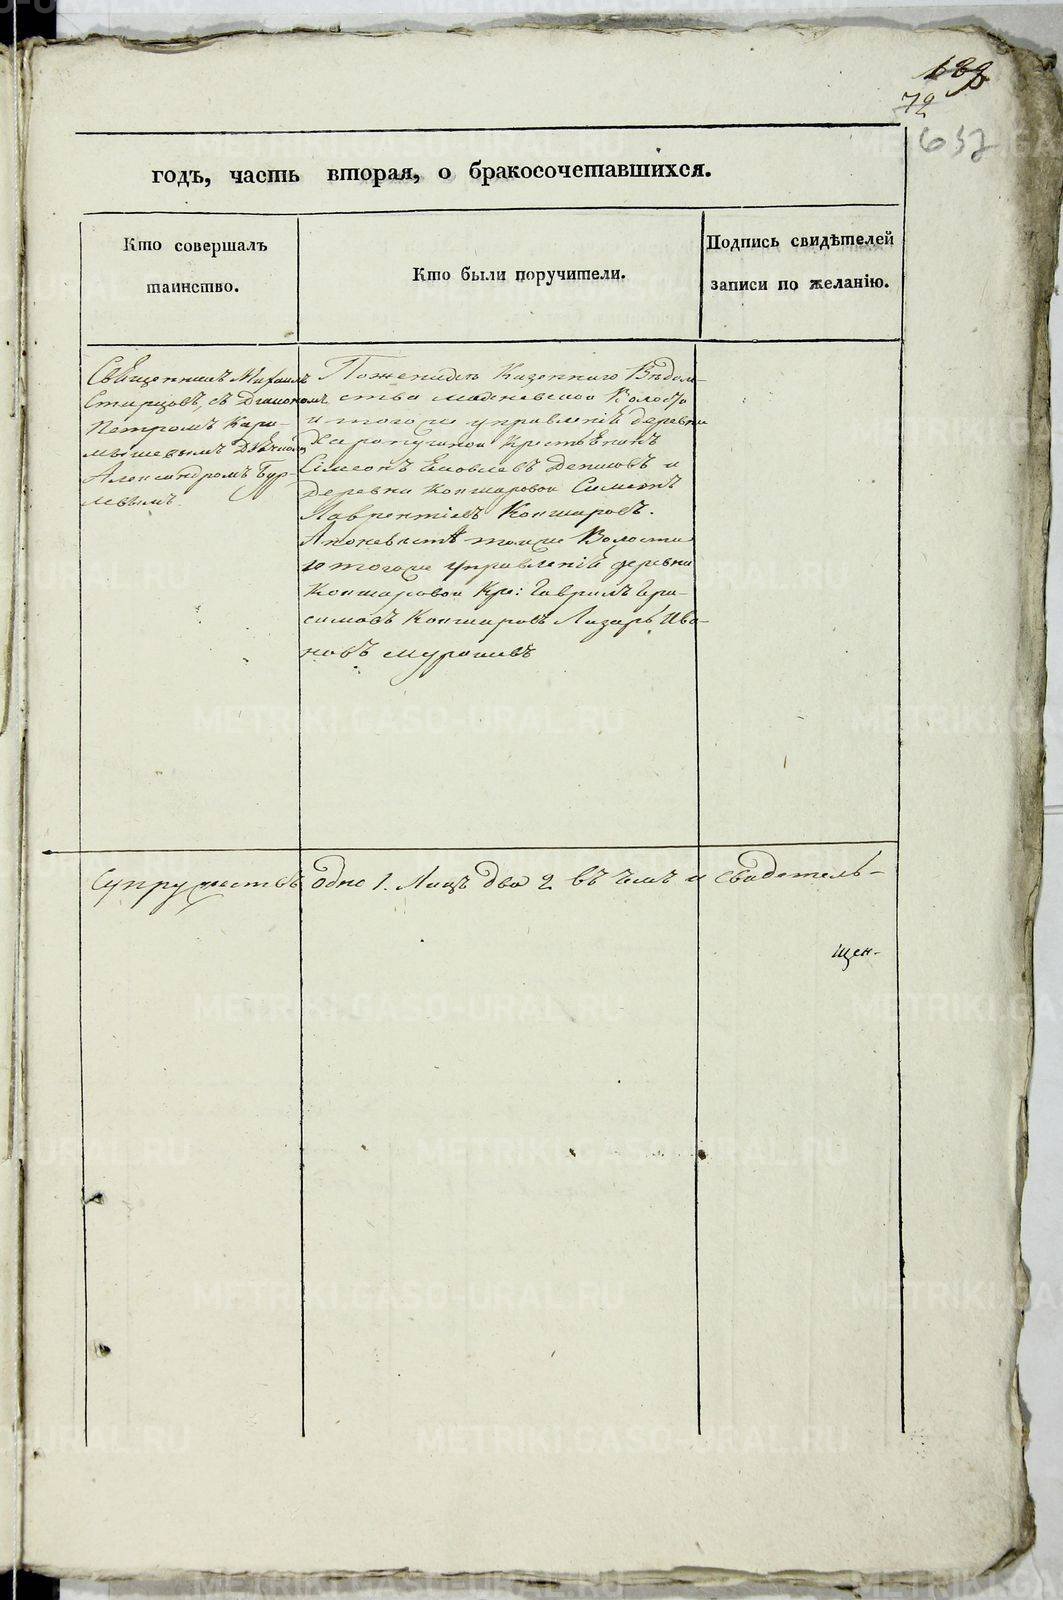 72
657
годъ, часть вторая, о бракосочетавшихся.
Кто совершалъ
таинство.
Кто были поручители.
Подпись свидѣтелей
записи по желанію.
Священникъ Михаилъ
Старцовъ, съ Діакономъ
Петромъ Кара-
мышевымъ Дьячкомъ
Александромъ Бур-
левымъ.
По женихѣ Казеннаго Вѣдом-
ства Маяневской Волости
и того же управленія деревни
Харопугиной Крестьянинъ
Симеонъ Яковлевъ Денисовъ и
деревни Кокшаровой Симеонъ
Лаврентіевъ Кокшаровъ.
А по невѣстѣ тойже Волости
и тогоже управленія деревни
Кокшаровой Кре: Гаврилъ Гера-
симовъ Кокшаровъ Лазарь Ива-
новъ Мурашевъ
Супружествъ одно 1. Лицъ два 2 въ чемъ и свидетель-
щен-
METRIKI.GASO-URAL.RU